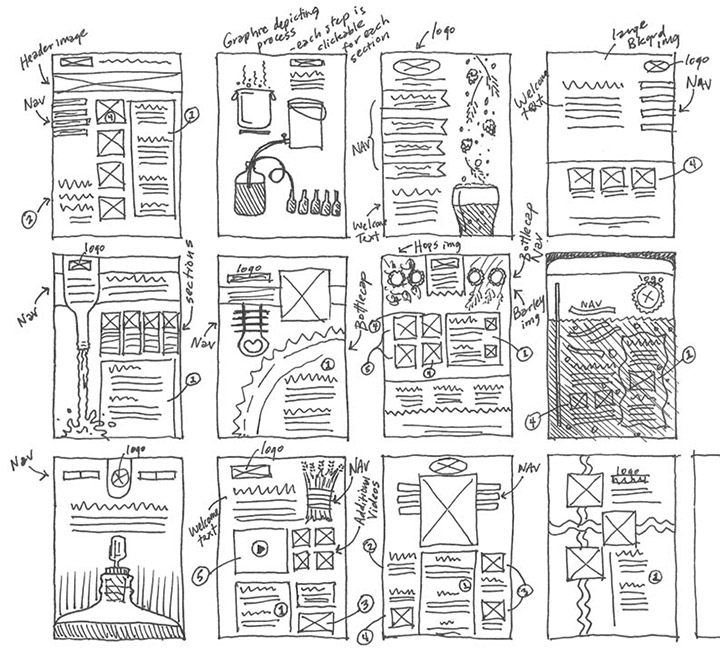 Header image
Nav
1
2
Graphic depicting
process
- each step is
clickable
for each
section
logo
NAV
Welcome
Text
large
Bkgrd
img
logo
NAV
Welcome
text
4
logo
Nav
sections
1
logo
Nav
Bottlecap
1
Hops img
Bottlecap
Nav
Barley
img
5
1
logo
NAV
4
Nav
logo
logo
NAV
Welcome
text
Additional
Videos
5
1
3
NAV
2
4
logo
1